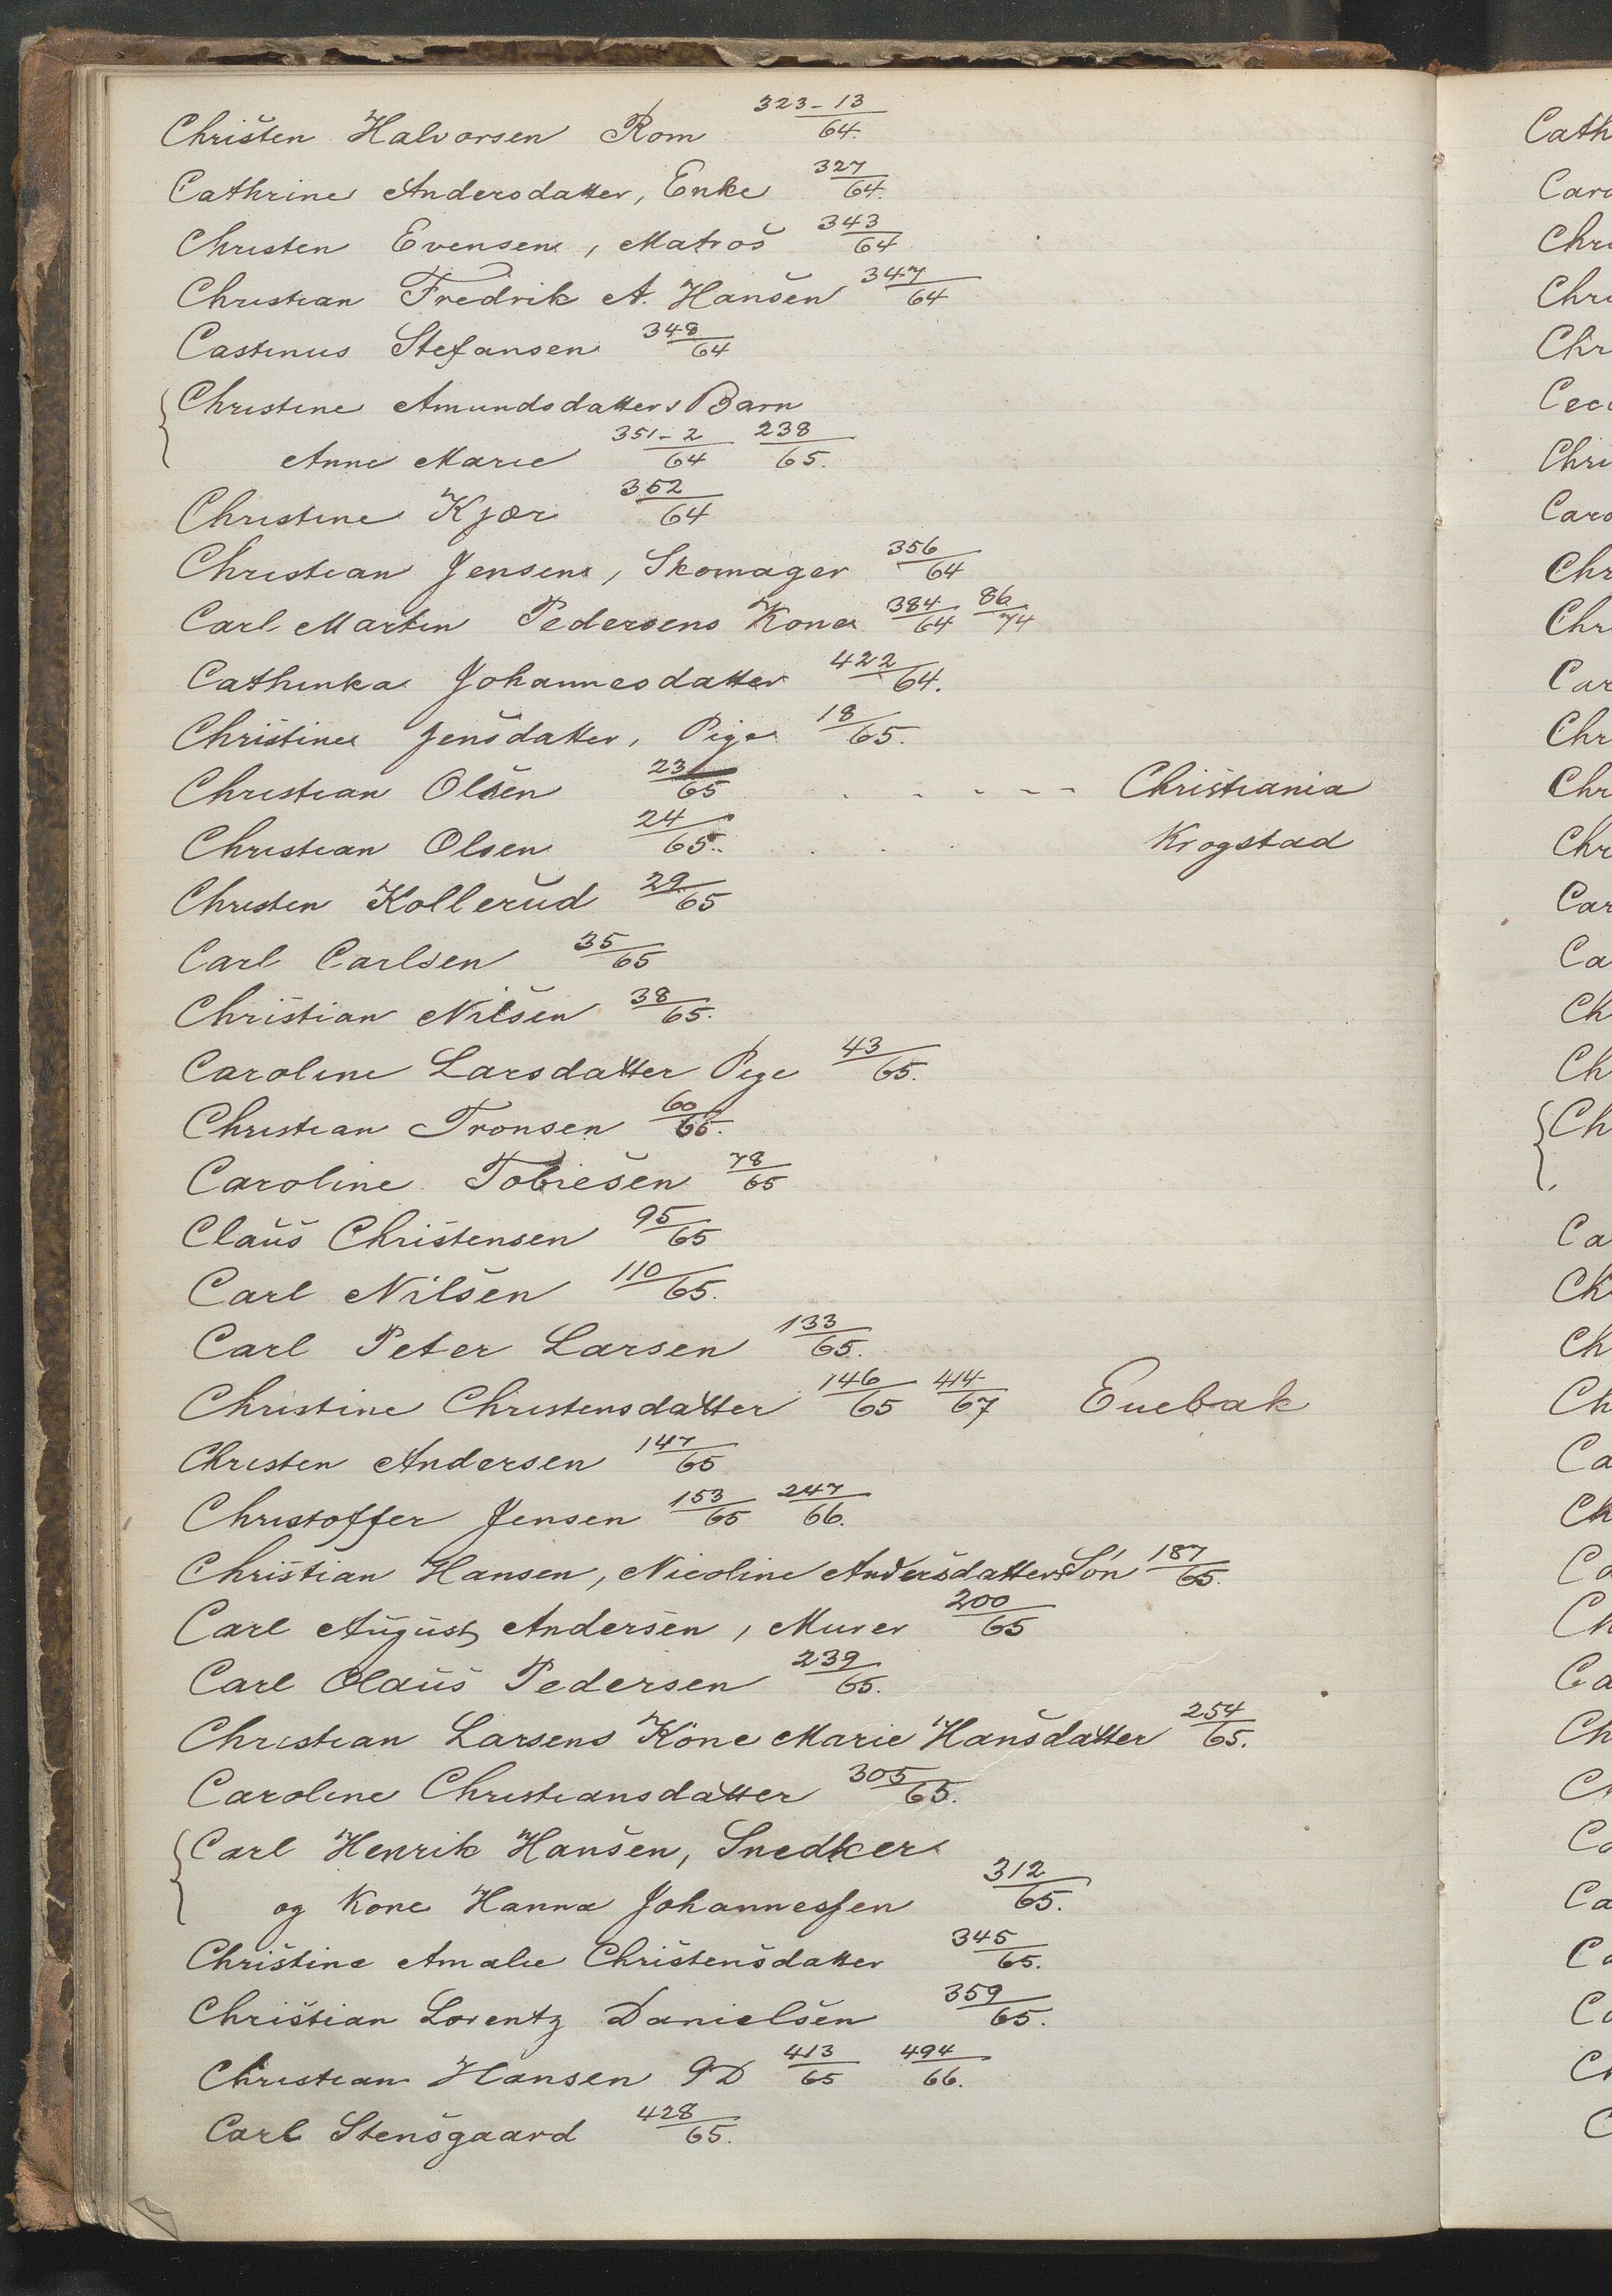 Christen Halvorsen Rom 323-13/64.
Cathrine Andersdatter, Enke 327/64.
Christen Evensen, Matros 343/64
Christian Fredrik A. Hansen 347/64
Castinus Stefansen 348/64
Christine Amundsdatters Barn
Anne Marie 351-2/64 238/65.
Christine Kjær 352/64
Christian Jensen, Skomager 356/64
Carl Martin Pedersens Kone 384/64 86/74
Cathinka Johannesdatter 422/64.
Christine Jensdatter, Pige 18/65.
Christian Olsen 23/65 . - - - - Christiania
Christian Olsen 24/65. . . . Krogstad
Christen Kollerud 29/65
Carl Carlsen 35/65
Christian Nilsen 38/65.
Caroline Larsdatter Pige 43/65.
Christian Tronsen 60/65.
Caroline Tobiesen 78/65
Claus Christensen 95/65
Carl Nilsen 110/65.
Carl Peter Larsen 133/65.
Christine Christensdatter 146/65 414/67 Enebak
Christen Andersen 147/65
Christoffer Jensen 153/65 247/66.
Christian Hansen, Nicoline Andersdatters Søn 187/65.
Carl August Andersen, Murer 200/65
Carl Olaus Pedersen 239/65.
Christian Larsens Kone Marie Hansdatter 254/65.
Caroline Christiansdatter 305/65.
Carl Henrik Hansen, Snedker
og Kone Hanna Johannessen 312/65.
Christine Amalie Christensdatter 345/65.
Christian Lorentz Danielsen 359/65.
Christian Hansen 413/65 494/66.
Carl Stensgaard 428/65.